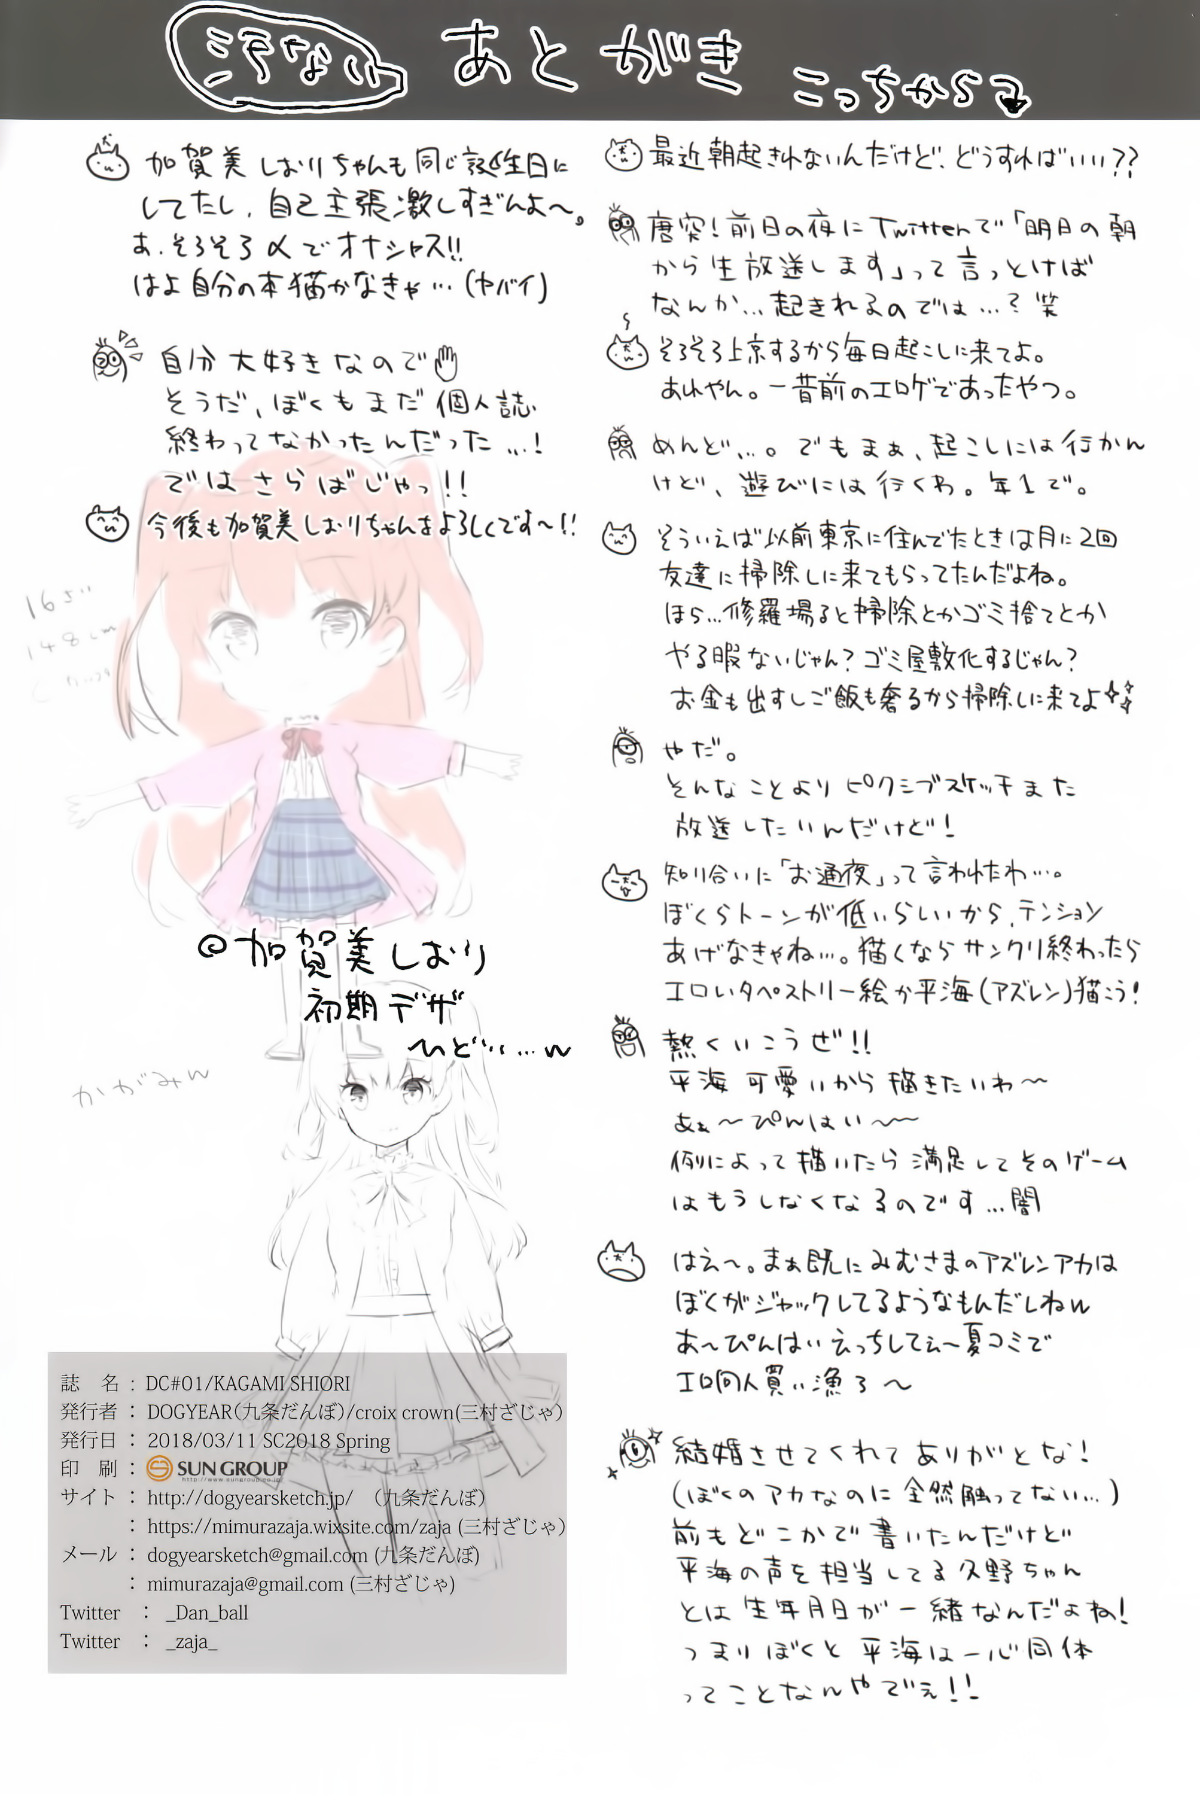 汚ない
あとがき
こっちから
最近朝起きれないんだけど、どうすればいい??
唐突!前日の夜にTwitterで「明日の朝
から生放送します」って言っとけば
なんか…起きれるのでは…?笑
そろそろ上京するから毎日起こしに来てよ。
あれやん。一昔前のエロゲであったやつ。
めんど…。でもまぁ、起こしには行かん
けど、遊びには行くわ。年1で。
そういえば以前東京に住んでたときは月に2回
友達に掃除しに来てもらってたんだよね。
ほら…修羅場ると掃除とかゴミ捨てとか
やる暇ないじゃん?ゴミ屋敷化するじゃん?
お金も出すしご飯も奢るから掃除しに来てよ
やだ。
そんなことよりピクシブスケッチまた
放送したいんだけど!
知り合いに「お通夜」って言われたわ…。
ぼくらトーンが低いらしいから、テンション
あげなきゃね…。描くならサンクリ終わったら
エロいタペストリー絵か平海(アズレン)描こう!
熱くいこうぜ!!
平海可愛いから描きたいわ〜
あぁ〜ぴんはい〜〜
例によって描いたら満足してそのゲーム
はもうしなくなるのです…闇
はえ〜。まぁ既にみむさまのアズレンアカは
ぼくがジャックしてるようなもんだしねw
あ〜ぴんはいえっちしてぇ〜夏コミで
エロ同人買い漁ろ〜
結婚させてくれてありがとな!
(ぼくのアカなのに全然触ってない…)
前もどこかで書いたんだけど
平海の声を担当してる久野ちゃん
とは生年月日が一緒なんだよね!
つまりぼくと平海は一心同体
ってことなんやでぇ!!
加賀美しおりちゃんも同じ誕生日に
してたし、自己主張激しすぎんよ〜。
あ、そろそろ〆でオナシャス!!
はよ自分の本描かなきゃ…(ヤバイ)
自分大好きなので
そうだ、ぼくもまだ個人誌
終わってなかったんだった…!
ではさらばじゃっ!!
今後も加賀美しおりちゃんをよろしくです〜!!
148cm
◎加賀美しおり
初期デザ
〜ひどい…w
かがみん
誌 名 : DC#01/KAGAMI SHIORI
発行者 : DOGYEAR(九条だんぼ)/croix crown(三村ざじゃ)
発行日 : 2018/03/11 SC2018 Spring
印 刷 : SUN GROUP
http://www.sungroup.co.jp/
サイト : http://dogyearsketch.jp/ (九条だんぼ)
: https://mimurazaja.wixsite.com/zaja (三村ざじゃ)
メール : dogyearsketch@gmail.com (九条だんぼ)
: mimurazaja@gmail.com (三村ざじゃ)
Twitter : _Dan_ball
Twitter : _zaja_